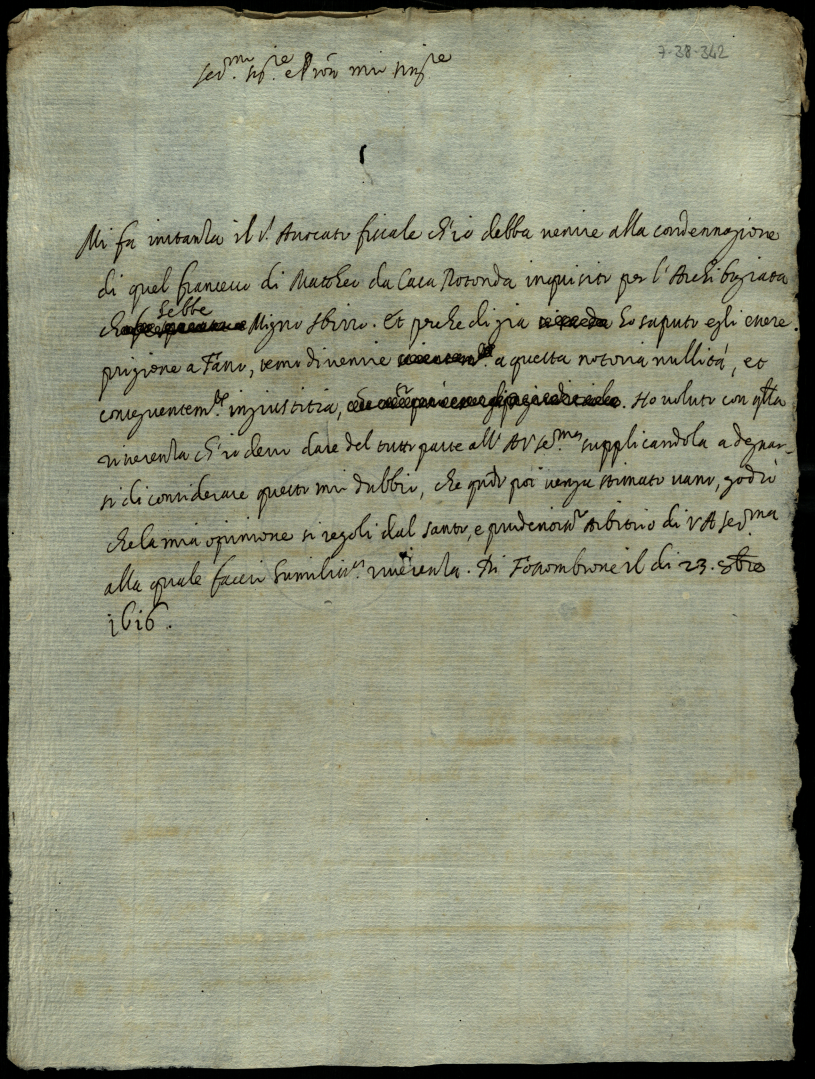 7-38-342
Ser.mo Sig.re e Pron mio sing.re
Mi fa instanza il s.r Avocato fiscale ch'io debba venire alla condennazione
di quel francesco di Mattheo da Casa Rotonda inquisito per l'Archibugiata
c'hebbe Migno sbirro. Et perche di già ho saputo egli essere
prigione a Fano, temo di venire a questa notoria nullità, et
conseguentem.te ingiustitia, . Ho voluto con q.lla
riverenza ch'io devo dare del tutto parte all' A V ser.ma supplicandola a degnar-
si di considerare questo mio dubbio, che q.ndo poi venga stimato vano, godrò
che la mia opinione si regoli dal santo, e prudentiss.o Arbitrio di V A Ser.ma
alla quale faccio humiliss.a riverenza. Di Fossombrone il di 23. 8bre
1616.